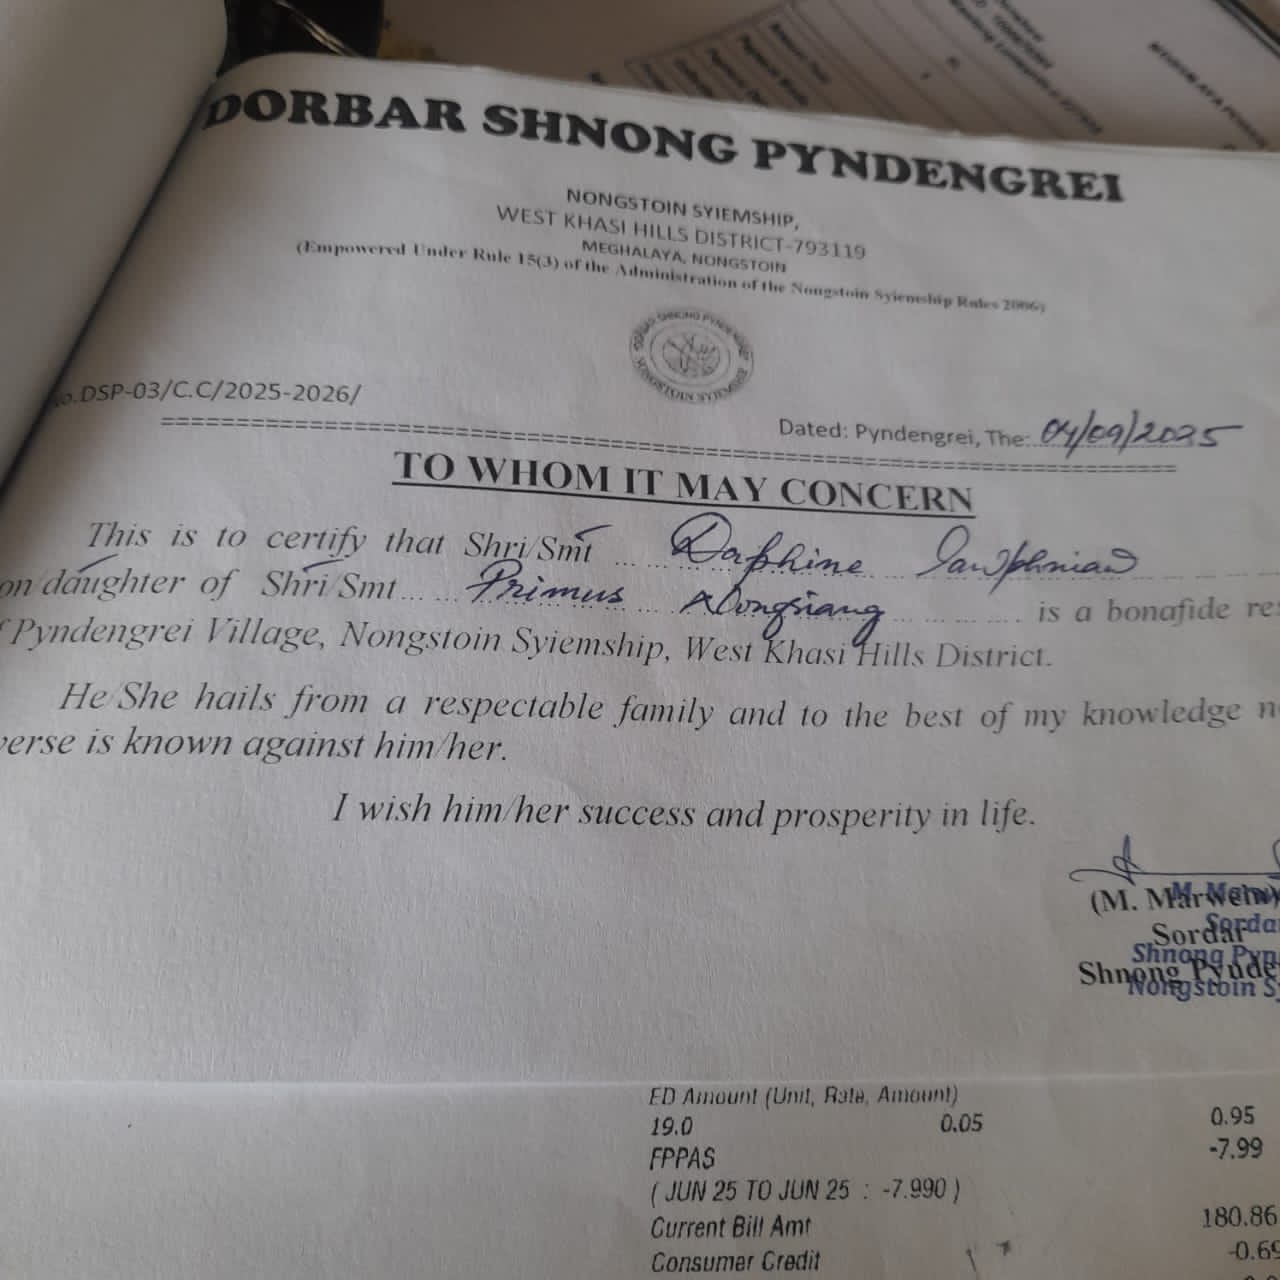 DORBAR SHNONG PYNDENGREI
NONGSTOIN SYIEMSHIP,
WEST KHASI HILLS DISTRICT-793119
MEGHALAYA, NONGSTOIN
(Empowered Under Rule 15(3) of the Administration of the Nongstoin Syiemship Rules 2006)
No.DSP-03/C.C/2025-2026/
Dated: Pyndengrei, The: 04/09/2025
TO WHOM IT MAY CONCERN
This is to certify that Shri/Smt Daphine
on/daughter of Shri/Smt Primus Nongsiang is a bonafide re
Pyndengrei Village, Nongstoin Syiemship, West Khasi Hills District.
He/She hails from a respectable family and to the best of my knowledge n
verse is known against him/her.
I wish him/her success and prosperity in life.
(M. Marwein)
Sordar
Shnong Pynde
ED Amount (Unit, Rate, Amount)
19.0 0.05 0.95
FPPAS -7.99
( JUN 25 TO JUN 25 : -7.990 )
Current Bill Amt 180.86
Consumer Credit -0.69